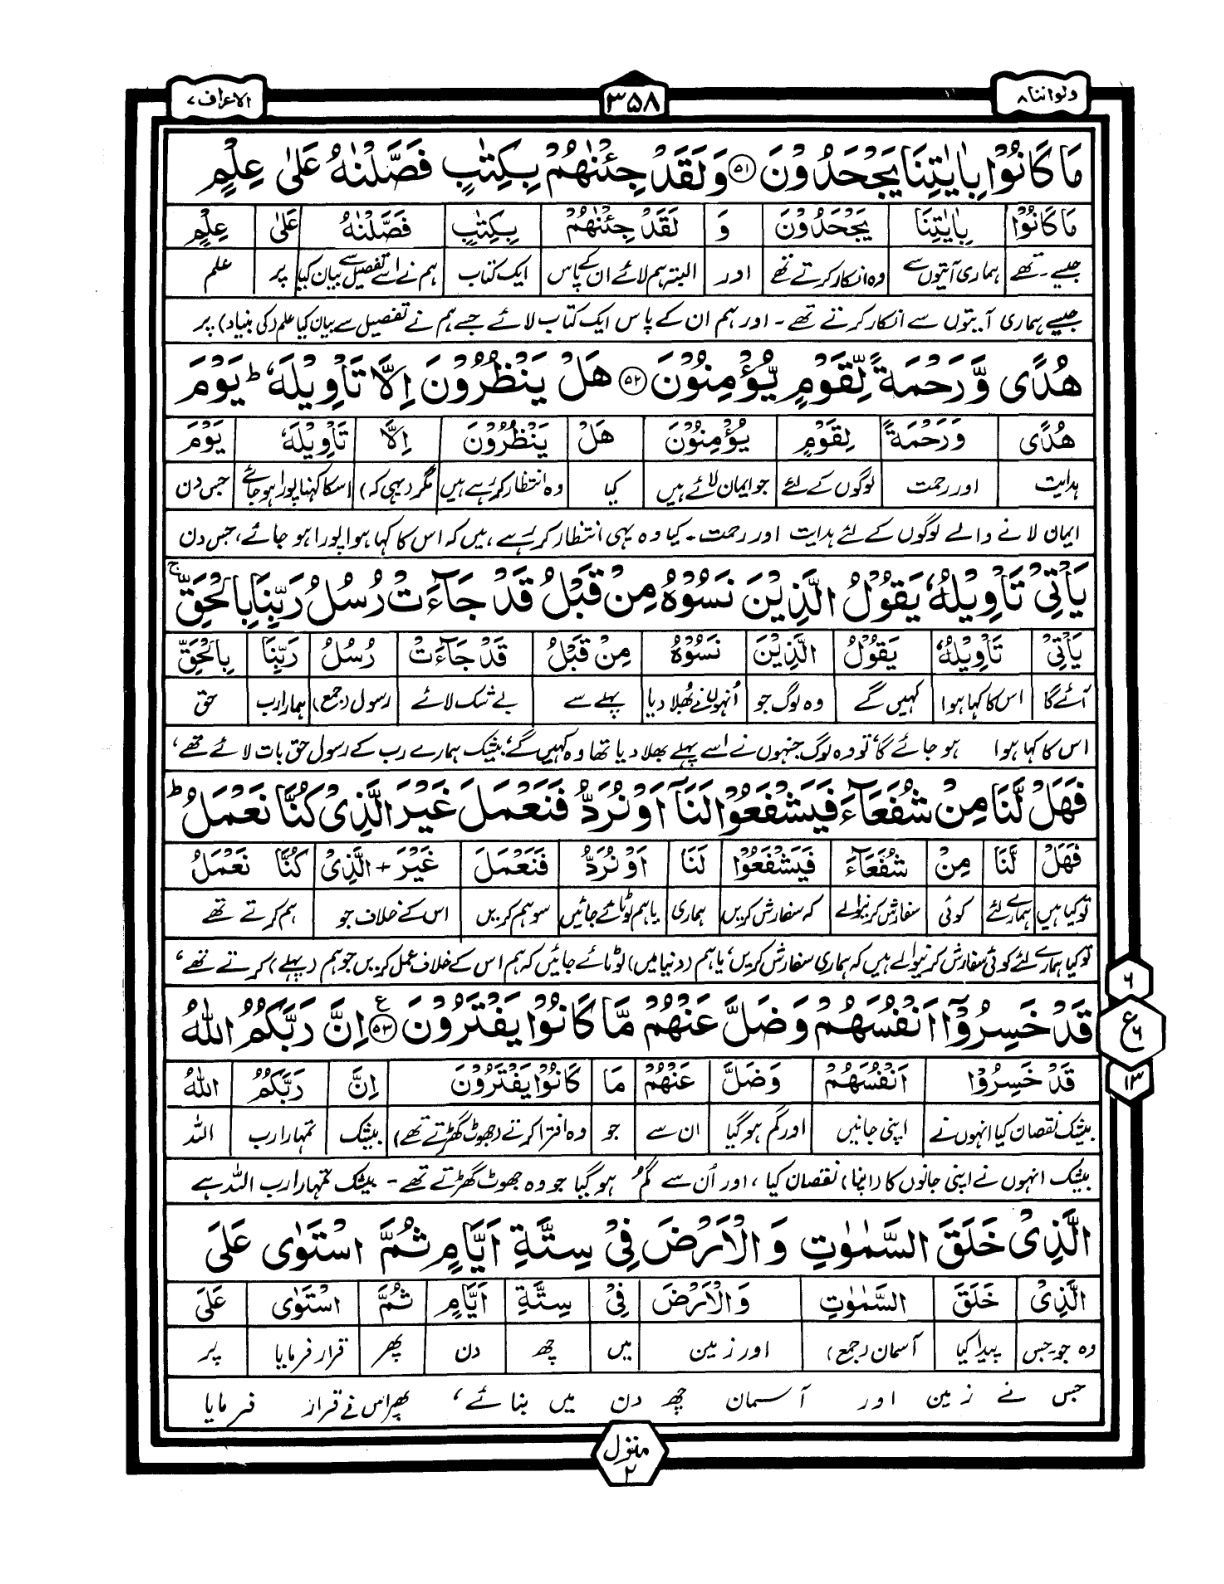 ولواننا ۸
۳۵۸
الاعراف ۷
مَا كَانُوْا بِاٰيٰتِنَا يَجْحَدُوْنَ ﴿۵۱﴾ وَلَقَدْ جِئْنٰهُمْ بِكِتٰبٍ فَصَّلْنٰهُ عَلٰى عِلْمٍ
مَا كَانُوْا بِاٰيٰتِنَا يَجْحَدُوْنَ وَ لَقَدْ جِئْنٰهُمْ بِكِتٰبٍ فَصَّلْنٰهُ عَلٰى عِلْمٍ
جیسے۔تھے ہماری آیتوں سے وہ انکار کرتے تھے اور البتہ ہم لائے ان کے پاس ایک کتاب ہم نے اسے تفصیل سے بیان کیا پر علم
جیسے ہماری آیتوں سے انکار کرتے تھے۔ اور ہم ان کے پاس ایک کتاب لائے جسے ہم نے تفصیل سے بیان کیا علم (کی بنیاد) پر
هُدًى وَّ رَحْمَةً لِّقَوْمٍ يُّؤْمِنُوْنَ ﴿۵۲﴾ هَلْ يَنْظُرُوْنَ اِلَّا تَاْوِيْلَهٗ ؕ يَوْمَ
هُدًى وَرَحْمَةً لِقَوْمٍ يُؤْمِنُوْنَ هَلْ يَنْظُرُوْنَ اِلَّا تَاْوِيْلَهٗ يَوْمَ
ہدایت اور رحمت لوگوں کے لئے جو ایمان لائے ہیں کیا وہ انتظار کر رہے ہیں مگر (یہی کہ) اسکا کہنا پورا ہو جائے جس دن
ایمان لانے والے لوگوں کے لئے ہدایت اور رحمت۔ کیا وہ یہی انتظار کر رہے ہیں کہ اس کا کہا ہوا پورا ہو جائے، جس دن
يَاْتِيْ تَاْوِيْلُهٗ يَقُوْلُ الَّذِيْنَ نَسُوْهُ مِنْ قَبْلُ قَدْ جَآءَتْ رُسُلُ رَبِّنَا بِالْحَقِّ ۚ
يَاْتِيْ تَاْوِيْلُهٗ يَقُوْلُ الَّذِيْنَ نَسُوْهُ مِنْ قَبْلُ قَدْ جَآءَتْ رُسُلُ رَبِّنَا بِالْحَقِّ
آئے گا اس کا کہا ہوا کہیں گے وہ لوگ جو اُنہوں نے بُھلا دیا پہلے سے بے شک لائے رسول (جمع) ہمارا رب حق
اس کا کہا ہوا ہو جائے گا، تو وہ لوگ جنہوں نے اسے پہلے بھلا دیا تھا وہ کہیں گے، بیشک ہمارے رب کے رسول حق بات لائے تھے،
فَهَلْ لَّنَا مِنْ شُفَعَآءَ فَيَشْفَعُوْا لَنَآ اَوْ نُرَدُّ فَنَعْمَلَ غَيْرَ الَّذِيْ كُنَّا نَعْمَلُ ؕ
فَهَلْ لَّنَا مِنْ شُفَعَآءَ فَيَشْفَعُوْا لَنَا اَوْ نُرَدُّ فَنَعْمَلَ غَيْرَ + الَّذِيْ كُنَّا نَعْمَلُ
تو کیا ہیں ہمارے لئے کوئی سفارش کرنیوالے کہ سفارش کریں ہماری یا ہم لوٹائے جائیں سو ہم کریں اس کے خلاف جو ہم کرتے تھے
تو کیا ہمارے لئے کوئی سفارش کرنیوالے ہیں کہ ہماری سفارش کریں، یا ہم (دنیا میں) لوٹائے جائیں کہ ہم اس کے خلاف عمل کریں جو ہم (پہلے) کرتے تھے،
قَدْ خَسِرُوْٓا اَنْفُسَهُمْ وَضَلَّ عَنْهُمْ مَّا كَانُوْا يَفْتَرُوْنَ ﴿۵۳﴾ ع اِنَّ رَبَّكُمُ اللّٰهُ
۶
ع ۶
۱۳
قَدْ خَسِرُوْا اَنْفُسَهُمْ وَضَلَّ عَنْهُمْ مَا كَانُوْا يَفْتَرُوْنَ اِنَّ رَبَّكُمُ اللّٰهُ
بیشک نقصان کیا انہوں نے اپنی جانیں اور گم ہو گیا ان سے جو وہ افترا کرتے (جھوٹ گھڑتے تھے) بیشک تمہارا رب اللہ
بیشک انہوں نے اپنی جانوں کا (اپنا) نقصان کیا، اور اُن سے گم ہو گیا جو وہ جھوٹ گھڑتے تھے۔ بیشک تمہارا رب اللہ ہے
الَّذِيْ خَلَقَ السَّمٰوٰتِ وَالْاَرْضَ فِيْ سِتَّةِ اَيَّامٍ ثُمَّ اسْتَوٰى عَلَى
الَّذِيْ خَلَقَ السَّمٰوٰتِ وَالْاَرْضَ فِيْ سِتَّةِ اَيَّامٍ ثُمَّ اسْتَوٰى عَلَى
وہ جو جس پیدا کیا آسمان (جمع) اور زمین میں چھ دن پھر قرار فرمایا پر
جس نے زمین اور آسمان چھ دن میں بنائے، پھر اس نے قرار فرمایا
منزل
۲